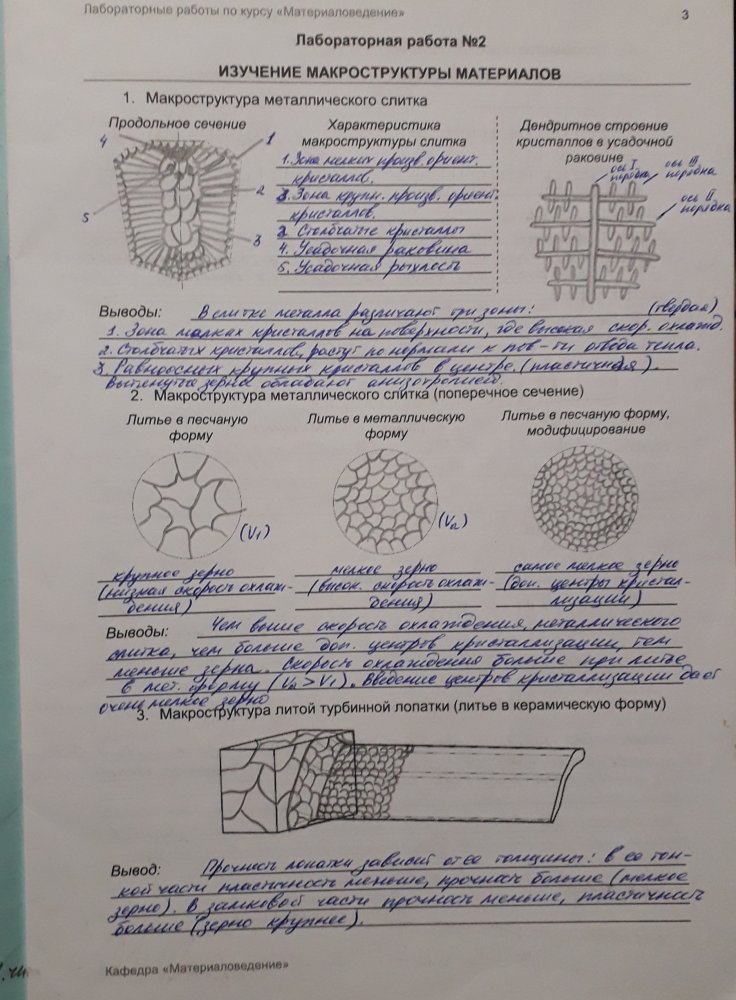 Лабораторные работы по курсу «Материаловедение»
3
Лабораторная работа №2
ИЗУЧЕНИЕ МАКРОСТРУКТУРЫ МАТЕРИАЛОВ
1. Макроструктура металлического слитка
Продольное сечение
4
1
2
3
5
Характеристика
макроструктуры слитка
1. Зона мелких произв. ориент.
кристаллов.
3. Зона крупн. произв. ориент.
кристаллов.
2 Столбчатые кристаллы
4. Усадочная раковина
5. Усадочная рыхлость
Дендритное строение
кристаллов в усадочной
раковине
ось I
порядка
ось III
порядка
ось II
порядка
Выводы: В слитке металла различают три зоны: (твердая)
1. Зона мелких кристаллов на поверхности, где высокая скор. охлажд.
2. Столбчатых кристаллов, растут по нормали к пов-ти отвода тепла.
3. Равноосных крупных кристаллов в центре (пластичная).
Вытянутые зерна обладают анизотропией.
2. Макроструктура металлического слитка (поперечное сечение)
Литье в песчаную
форму
Литье в металлическую
форму
Литье в песчаную форму,
модифицирование
(V₁)
(V₂)
крупное зерно
(низкая скорость охлаж-
дения)
мелкое зерно
(высок. скорость охлаж-
дения)
самое мелкое зерно
(доп. центры кристал-
лизации)
Выводы: Чем выше скорость охлаждения, металлического
слитка, чем больше доп. центров кристаллизации, тем
меньше зерна. Скорость охлаждения больше при литье
в мет. форму (V₂ > V₁). Введение центров кристаллизации дает
очень мелкое зерно
3. Макроструктура литой турбинной лопатки (литье в керамическую форму)
Вывод: Прочность лопатки зависит от ее толщины: в ее тон-
кой части пластичность меньше, прочность больше (мелкое
зерно). В замковой части прочность меньше, пластичность
больше (зерно крупнее).
Кафедра «Материаловедение»